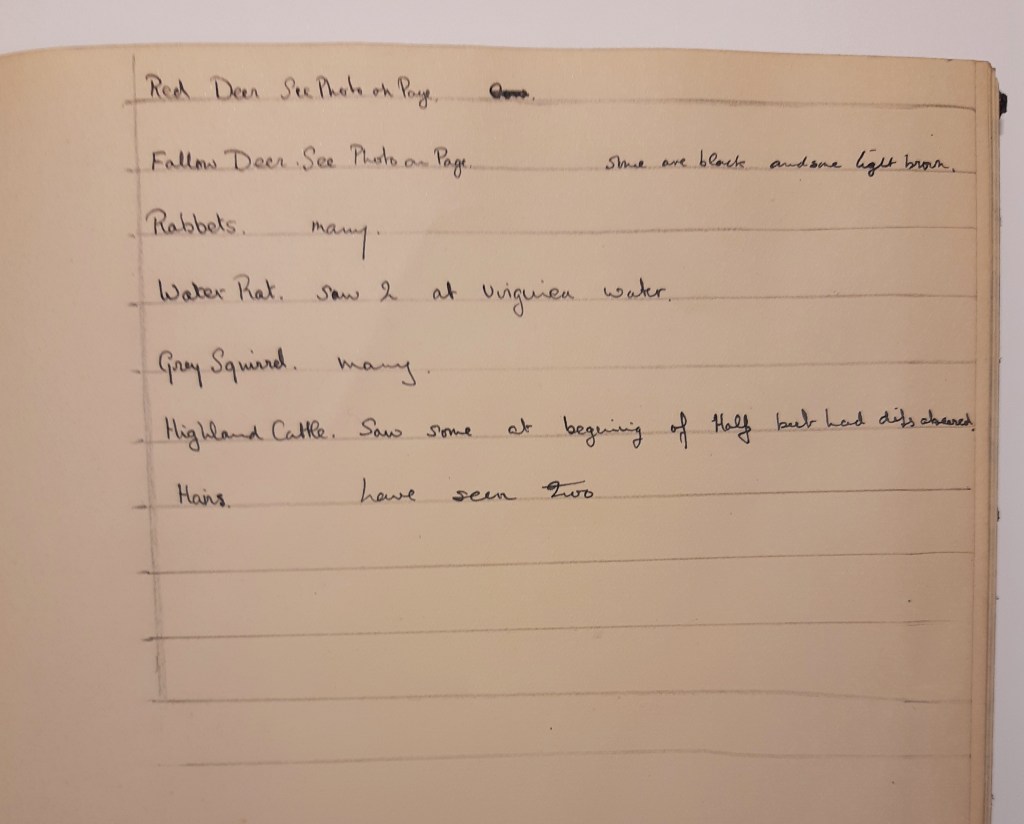 Red Deer See Photo on Page.
Fallow Deer. See Photo on Page. some are black and some light brown.
Rabbets. many.
Water Rat. saw 2 at Virginea water.
Grey Squirrel. many.
Highland Cattle. Saw some at begining of Half but had dissapeared.
Hairs. have seen two